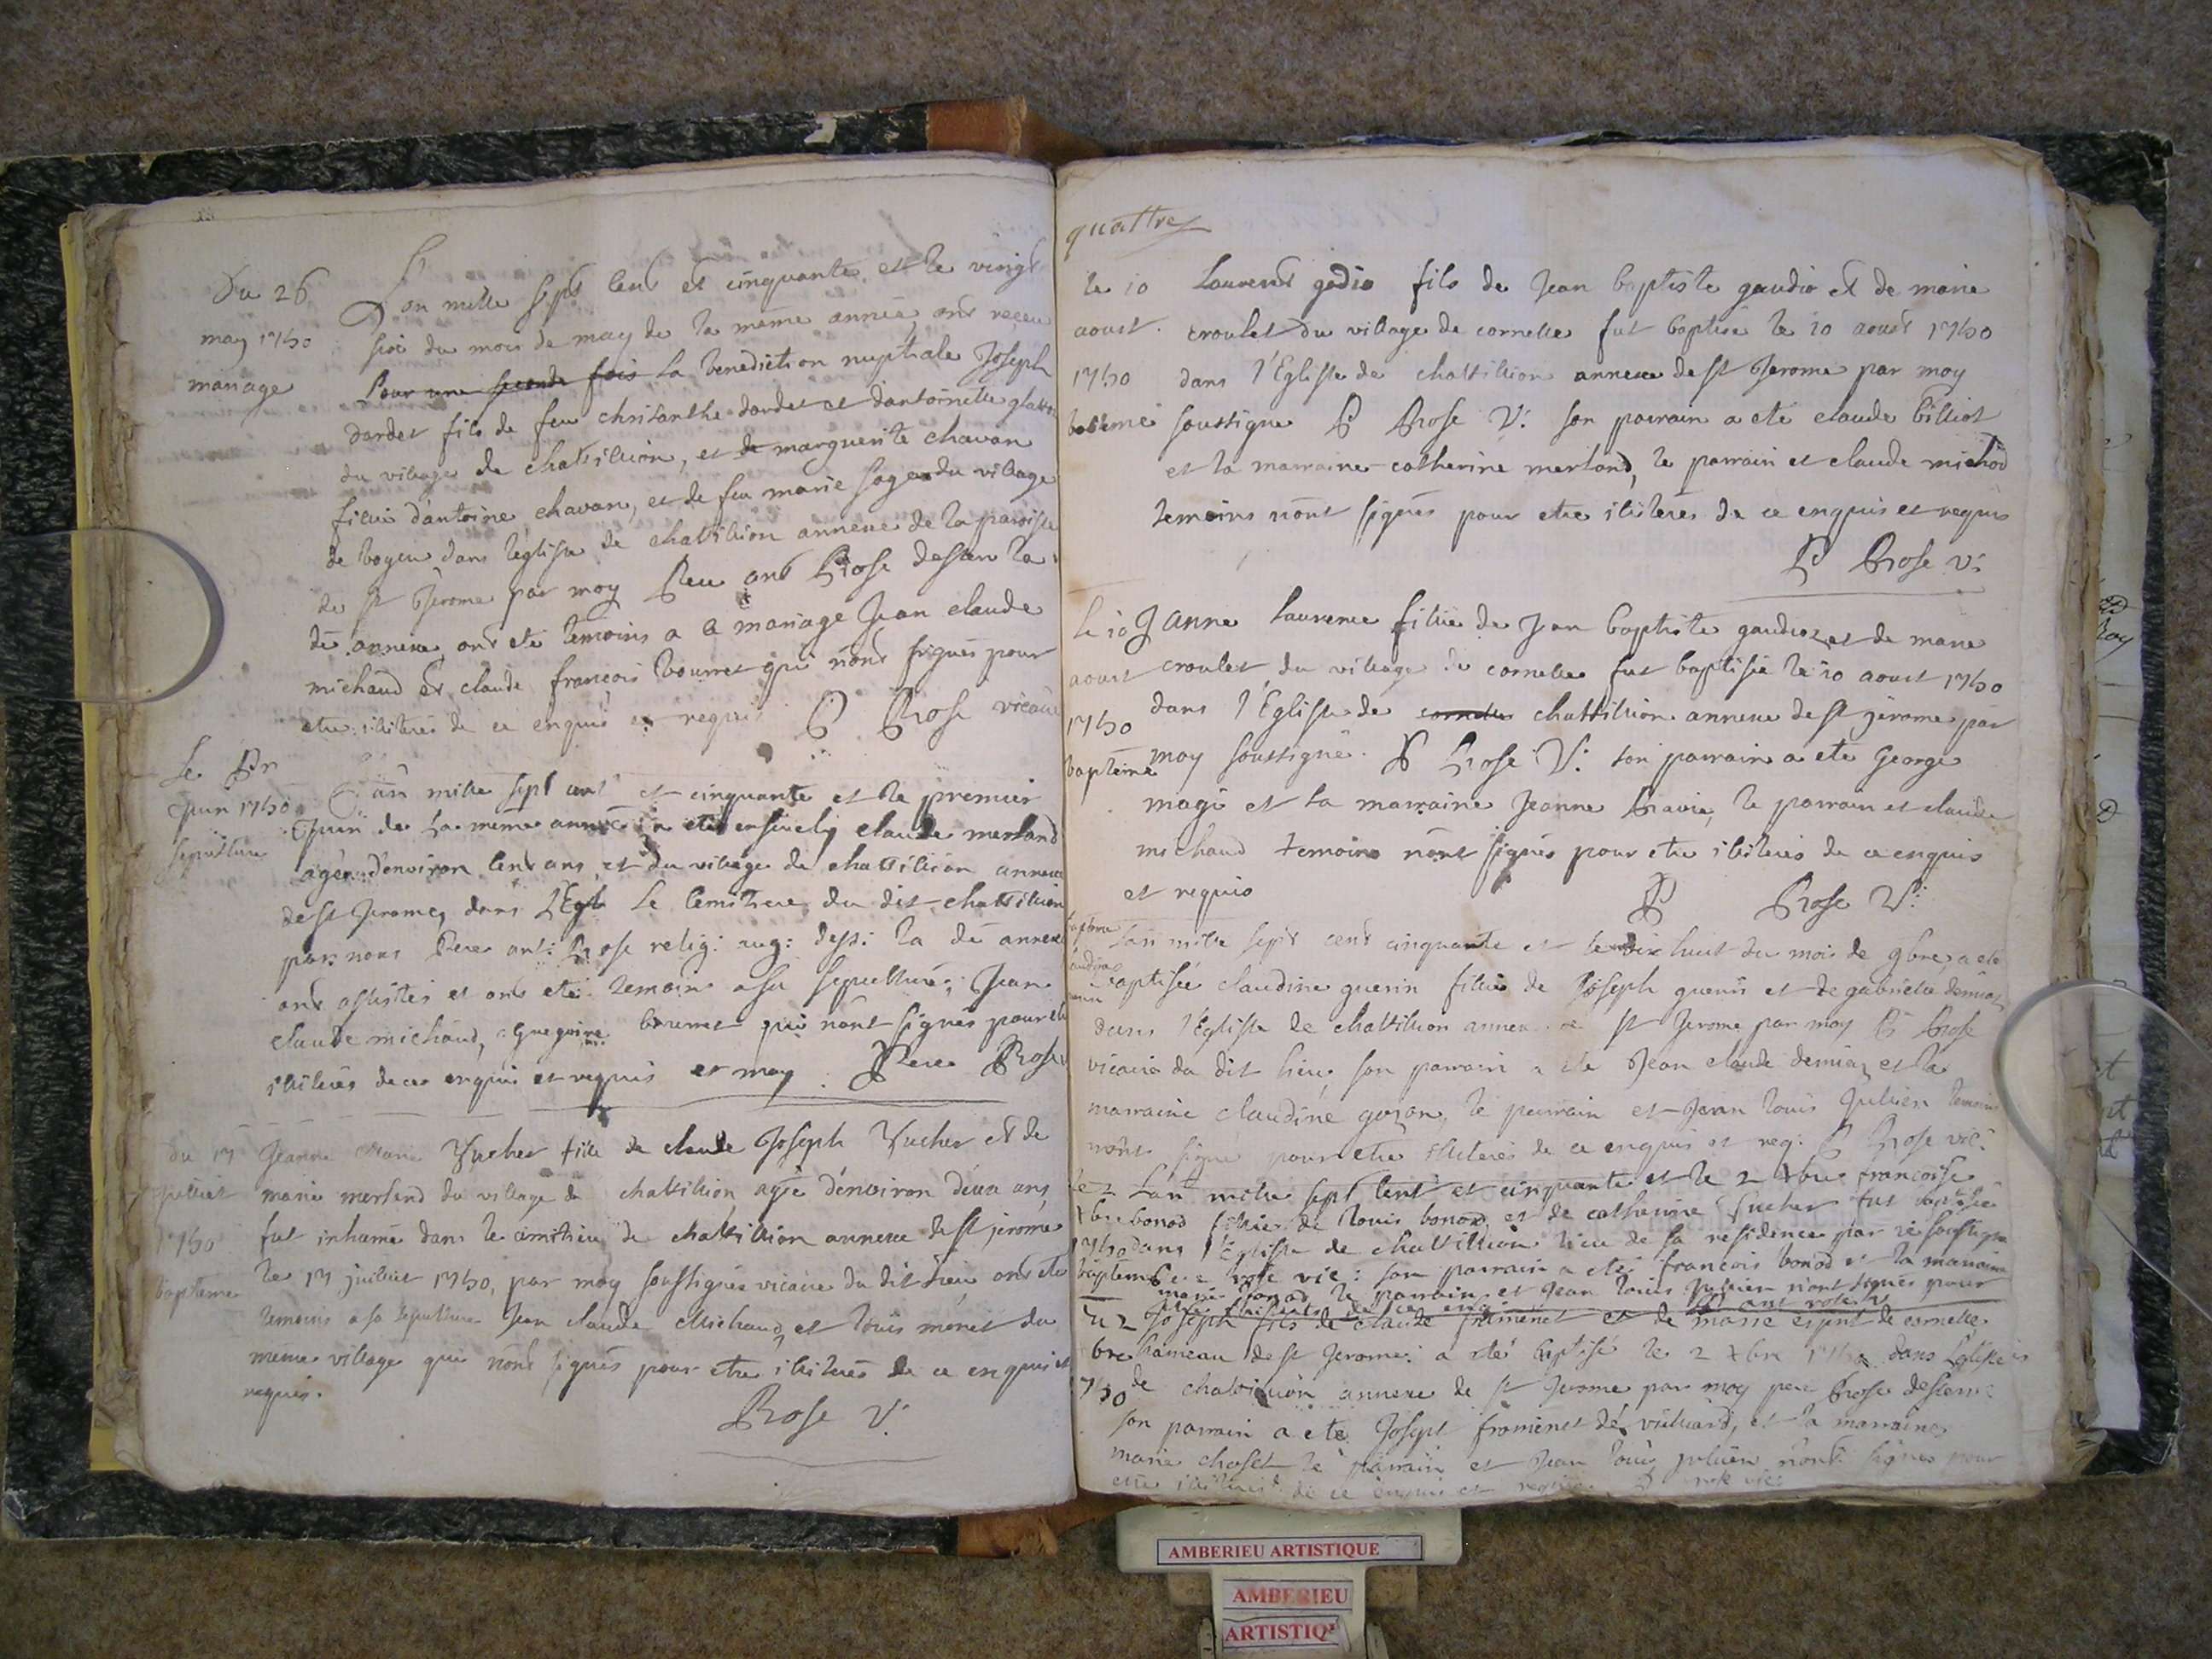 Du 26
may 1750
mariage
L'an mille sept cent et cinquante et le vingt
six du mois de may de la meme année ont receu
Pour une seconde fois la benediction nuptiale Joseph
dardet fils de feu chrisanthe dardet et d'antoinette
du village de chattillion, et de marguerite chavan
fillie d'antoine chavan, et de feu marie du village
de dans l'eglise de chattillion annexe de la paroisse
de st Jerome par moy Pere ant Rose desser la
de annexe ont ete temoins a ce mariage Jean claude
michaud et claude francois bourret qui n'ont signés pour
etre illiterés de ce enquis et requis P Rose vicaire
Le Pr
Juin 1750
sepulture
L'an mille sept cent et cinquante et le premier
Juin de la meme année a ete enseveli claude merland
agé d'environ cent ans, et du village de chattillion annexe
de st Jerome, dans L'Egl Le Cemitiere du dit chattillion
par nous Pere ant: Rose relig: aug: dess: la de annexe
ont assistes et ont ete temoins a sa sepulture, Jean
claude michaud, Gregoire bourret qui n'ont signés pour etre
illiterés de ce enquis et requis et moy Pere Rose v
du 17
juilliet
1750
bapteme
Jeanne Marie Vucher fille de claude Joseph Vucher et de
marie merland du village de chattillion agée d'environ deux ans
fut inhumé dans le cimitiere de chattillion annexe de st jerome
le 17 juilliet 1750, par moy soussignée vicaire du dit lieu ont ete
temoins a sa sepulture Jean claude Michaud, et louis monet du
meme village qui n'ont signés pour etre illiterés de ce enquis et
requis.
Rose V.
quattre
le 10
aoust
1750
bateme
Laurent godio fils de Jean baptiste gaudio et de marie
croulet du village de cornelle fut baptisé le 10 aoust 1750
dans l'Eglise de chattillion annexe de st Jerome par moy
soussigne P Rose V. son parrain a eté claude billiot
et la marraine catherine merland, le parrain et claude michod
temoins n'ont signés pour etre illiterés de ce enquis et requis
P Rose v.
le 10
aoust
1750
bapteme
Janne laurence fillie de Jean baptiste gaudioz et de marie
croulet, du village de cornelle fut baptisée le 10 aoust 1750
dans l'Eglise de cornelle chattillion annexe de st jerome par
moy soussigné. P Rose V. son parrain a ete George
magi et la marraine Jeanne bravie, le parrain et claude
michaud temoins n'ont signés pour etre illiterés de ce enquis
et requis
P Rose V.
bapteme
L'an mille sept cent cinquante et le dix huit du mois de 9bre, a ete
baptisée claudine guerin fillie de Joseph guerin et de gabrielle demiaz
dans l'Eglise de chattillion annexe de st Jerome par moy P Rose
vicaire du dit lieu, son parrain a ete Jean claude demiaz et la
marraine claudine gozon, le parrain et Jean louis Jullien temoins
n'ont signé pour etre illiterés de ce enquis et req: P Rose vic:
Le 2
xbre
1750
bapteme
L'an mille sept cent et cinquante et le 2 xbre francoise
bonod fillie de louis bonod, et de catherine Vucher fut baptisée
dans l'Eglise de chattillion lieu de sa residence par le soussigne
Pere Rose vic: son parrain a eté francois bonod et la marraine
marie bonod, le parrain et Jean louis Jullien n'ont signés pour
etre illiterés de ce enq
Du 2
bre
1750
Joseph fils de claude framinet et de marie de cornelle
hameau de st Jerome: a eté baptisé le 2 xbre 1750 dans l'eglise
de chattillion annexe de st Jerome par moy pere Rose
son parrain a ete Joseph frominet de, et la marraine
marie choset le parrain et Jean louis jullien n'ont signes pour
etre illiterés de ce enquis et requis P Rose vic:
AMBERIEU ARTISTIQUE
AMBERIEU
ARTISTIQ